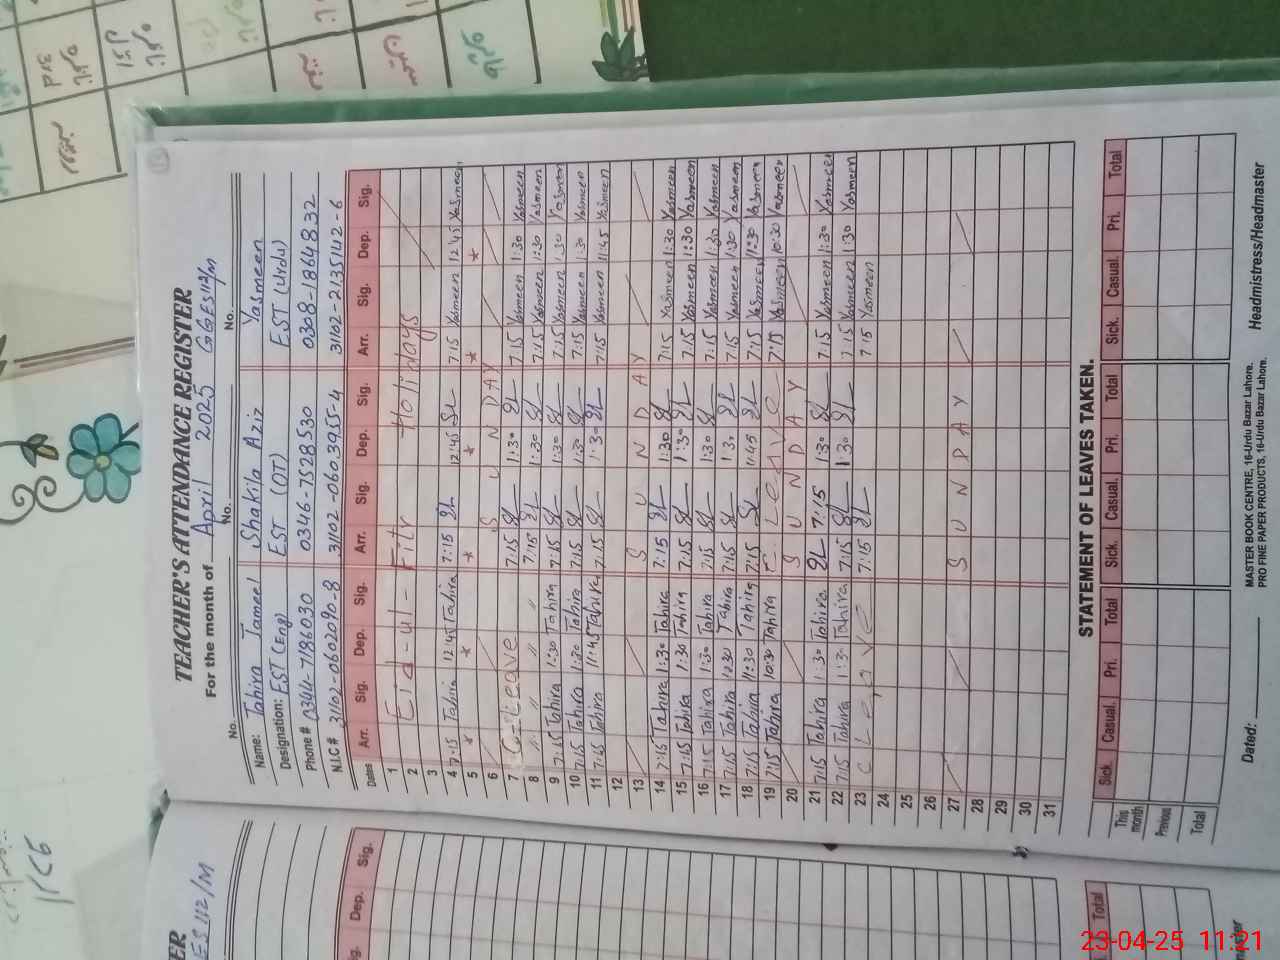 TEACHER'S ATTENDANCE REGISTER
For the month of April 2025 GGES112/M
No. No. No.
Name: Tahira Jameel Shakila Aziz Yasmeen
Designation: EST (Eng) EST (OT) EST (Urdu)
Phone # 0344-7186030 0346-7528530 0308-1864832
N.I.C # 31102-0602090-8 31102-0603955-4 31102-2135142-6
Dates Arr. Sig. Dep. Sig. Arr. Sig. Dep. Sig. Arr. Sig. Dep. Sig.
1
2 Eid-ul-Fitr Holidays
3
4 7:15 Tahira 12:45 Tahira 7:15 SL 12:45 SL 7:15 Yasmeen 12:45 Yasmeen
5 * * * * * *
6 S U N D A Y
7 Leave 7:15 SL 1:30 SL 7:15 Yasmeen 1:30 Yasmeen
8 〃 〃 〃 〃 7:15 SL 1:30 SL 7:15 Yasmeen 1:30 Yasmeen
9 7:15 Tahira 1:30 Tahira 7:15 SL 1:30 SL 7:15 Yasmeen 1:30 Yasmeen
10 7:15 Tahira 1:30 Tahira 7:15 SL 1:30 SL 7:15 Yasmeen 1:30 Yasmeen
11 7:15 Tahira 11:45 Tahira 7:15 SL 1:30 SL 7:15 Yasmeen 11:45 Yasmeen
12
13 S U N D A Y
14 7:15 Tahira 1:30 Tahira 7:15 SL 1:30 SL 7:15 Yasmeen 1:30 Yasmeen
15 7:15 Tahira 1:30 Tahira 7:15 SL 1:30 SL 7:15 Yasmeen 1:30 Yasmeen
16 7:15 Tahira 1:30 Tahira 7:15 SL 1:30 SL 7:15 Yasmeen 1:30 Yasmeen
17 7:15 Tahira 1:30 Tahira 7:15 SL 1:30 SL 7:15 Yasmeen 1:30 Yasmeen
18 7:15 Tahira 11:30 Tahira 7:15 SL 11:45 SL 7:15 Yasmeen 11:30 Yasmeen
19 7:15 Tahira 10:30 Tahira C Leave 7:15 Yasmeen 10:30 Yasmeen
20 S U N D A Y
21 7:15 Tahira 1:30 Tahira SL 7:15 1:30 SL 7:15 Yasmeen 1:30 Yasmeen
22 7:15 Tahira 1:30 Tahira 7:15 SL 1:30 SL 7:15 Yasmeen 1:30 Yasmeen
23 C Leave 7:15 SL 7:15 Yasmeen
24
25
26
27 S U N D A Y
28
29
30
31
STATEMENT OF LEAVES TAKEN.
Sick. Casual. Pri. Total Sick. Casual. Pri. Total Sick. Casual. Pri. Total
This month
Previous
Total
MASTER BOOK CENTRE, 16-Urdu Bazar Lahore.
PRO FINE PAPER PRODUCTS, 16-Urdu Bazar Lahore.
Dated: Headmistress/Headmaster
ES 112/M
Sig. Dep. Sig.
Total
23-04-25 11:21